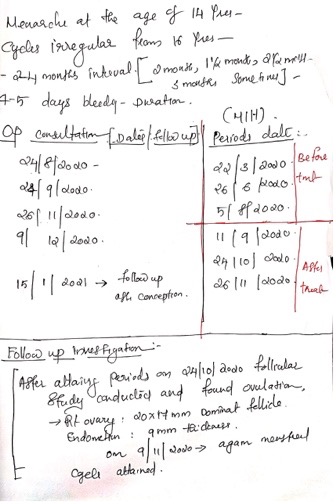 Menarche at the age of 14 Yrs-
Cycles irregular from 16 Yrs-
- 2-4 months interval. [2 month, 1½ month, 2½ month
3 months sometimes] -
4-5 days bleedy - Duration.
(M/H).
OP consultation [Dates/follow up]
Periods date :-
24/8/2020 -
24/9/2020.
26/11/2020.
9/12/2020.
15/1/2021 → follow up
after conception.
22/3/2020
26/6/2020.
5/8/2020.
Before
tmt
11/9/2020.
24/10/2020.
26/11/2020
After
treat
Follow up investigation :-
After attaing periods on 24/10/2020 follicular
Study conducted and found ovulation,
→ Rt ovary: 20x17mm Dominat follicle.
Endometrium : 9mm thickness.
on 9/11/2020 → again menstrual
Cycle attained.